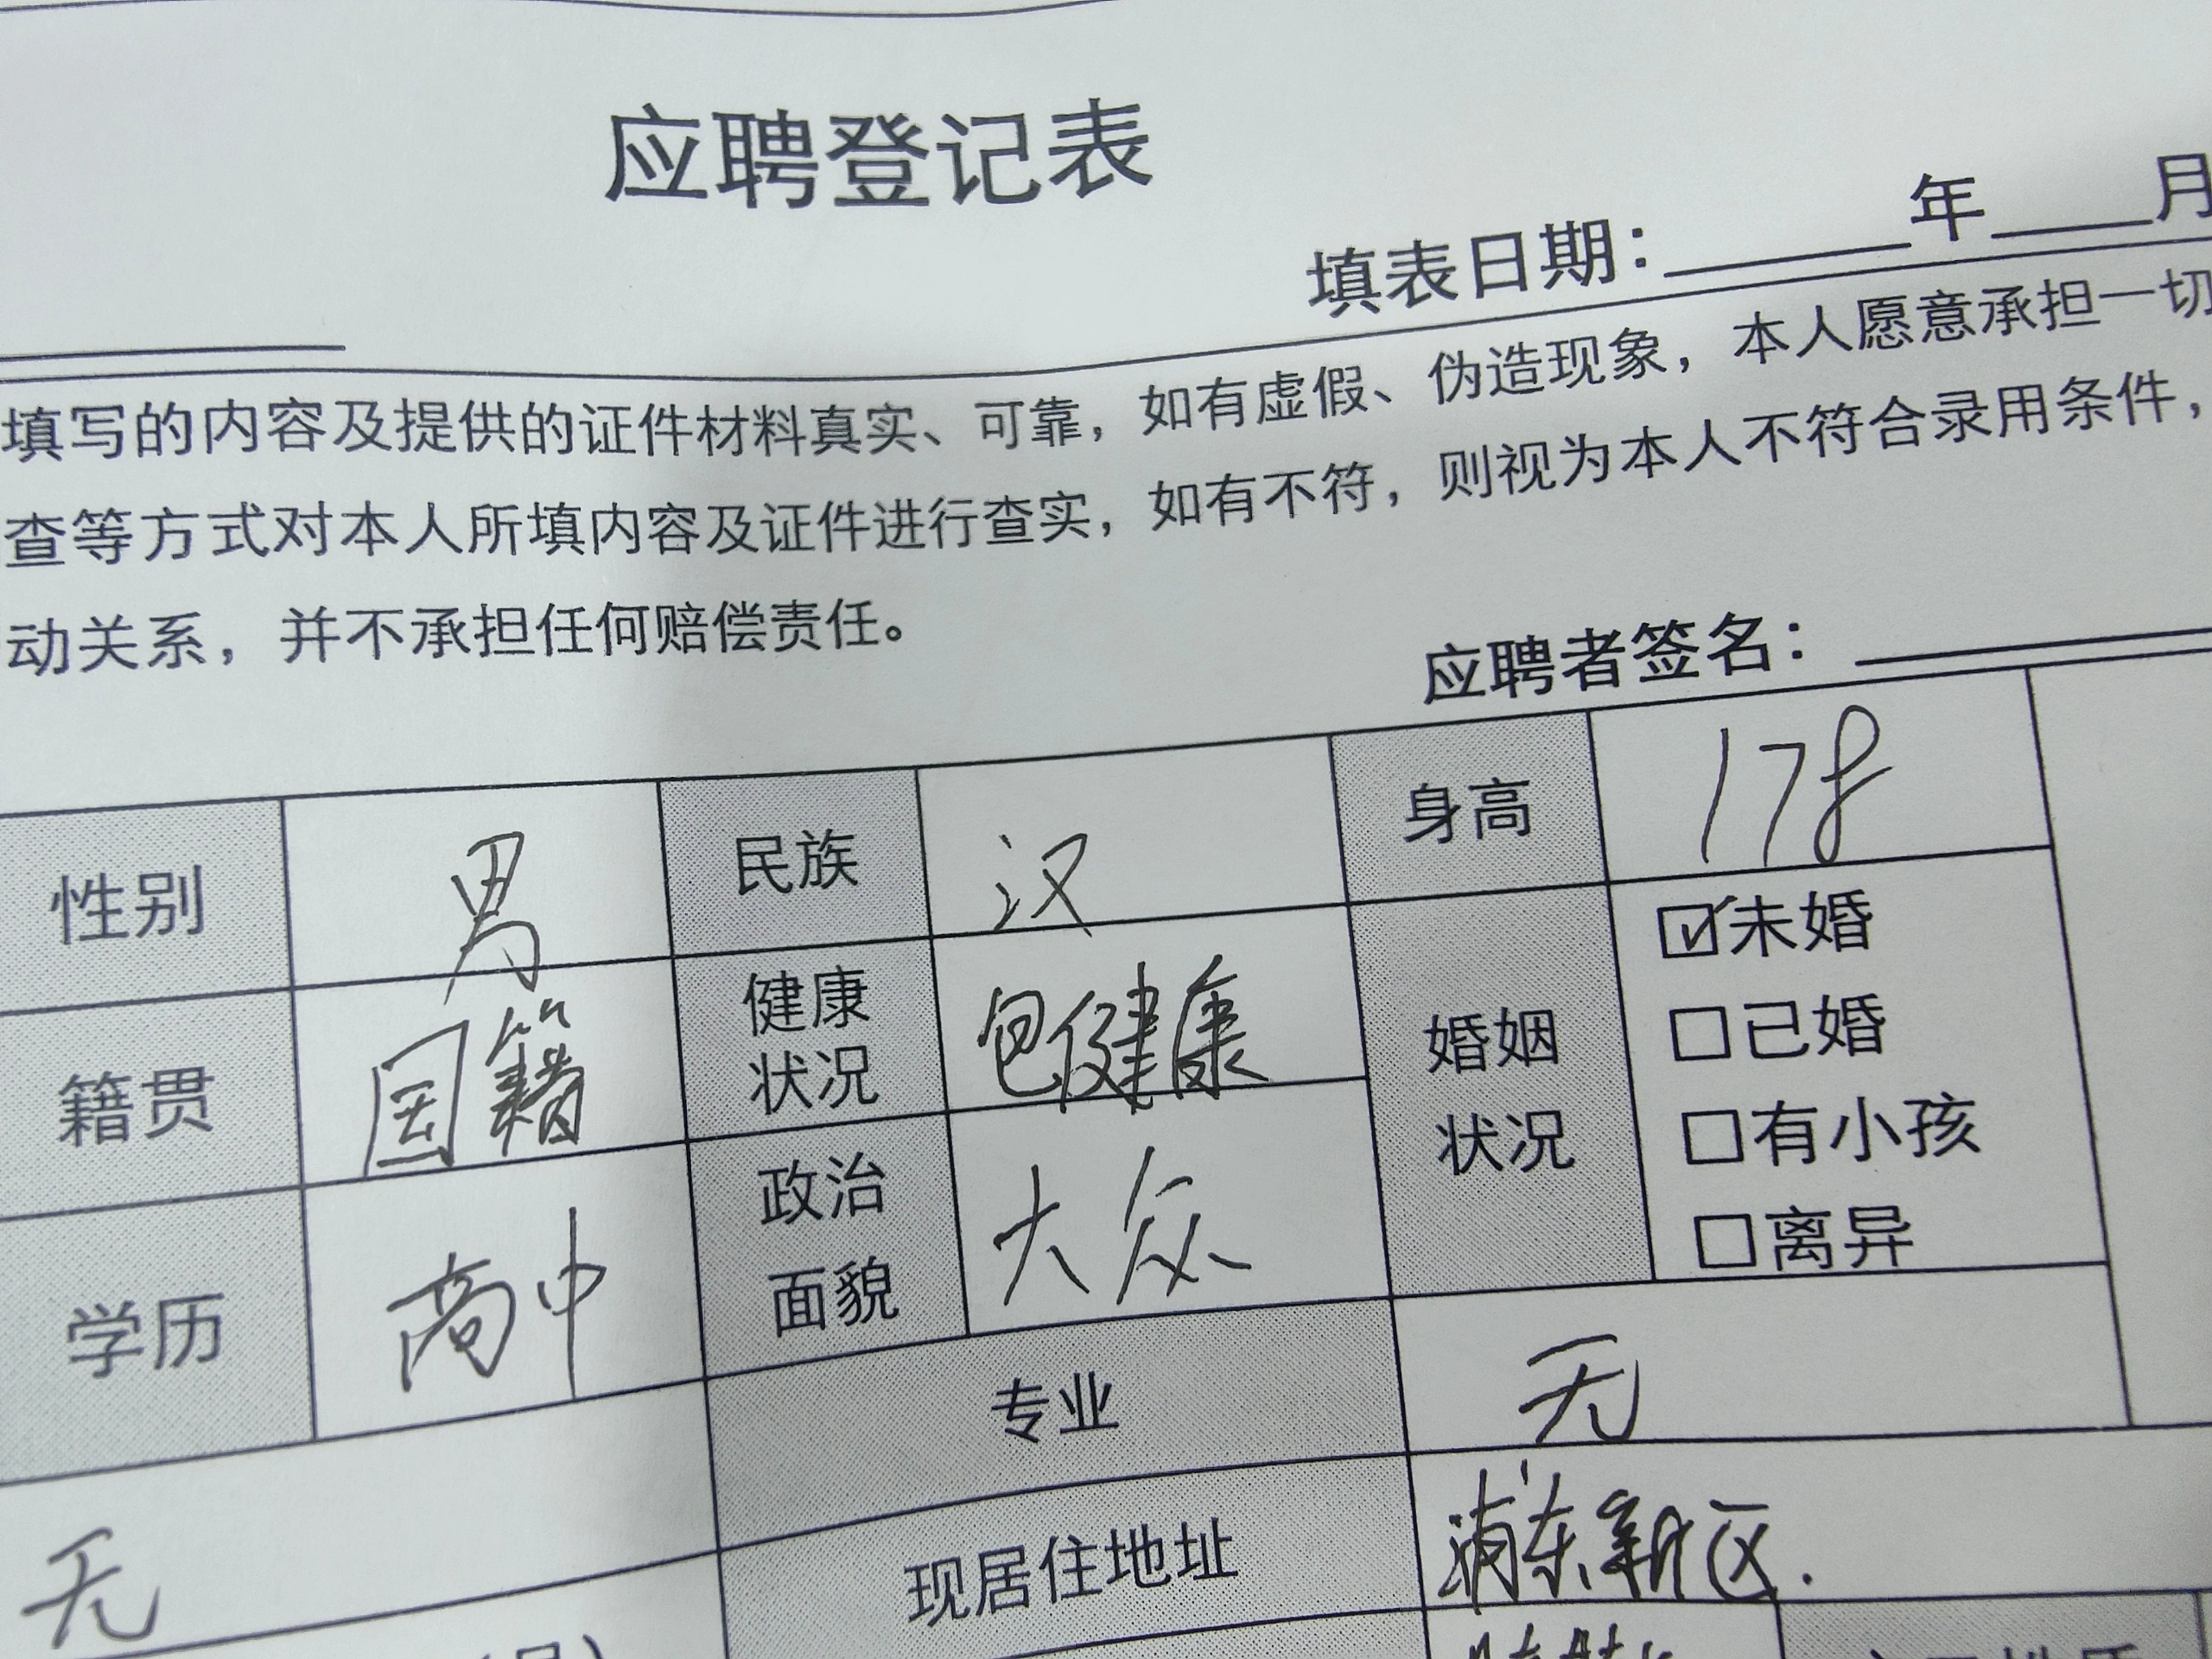 应聘登记表
填表日期：____年___月
填写的内容及提供的证件材料真实、可靠，如有虚假、伪造现象，本人愿意承担一切
查等方式对本人所填内容及证件进行查实，如有不符，则视为本人不符合录用条件，
动关系，并不承担任何赔偿责任。
应聘者签名：
性别 男 民族 汉 身高 178
籍贯 国籍 健康状况 包健康 婚姻状况 ☑未婚
□已婚
□有小孩
□离异
学历 高中 政治面貌 大众
专业 无
无 现居住地址 浦东新区.